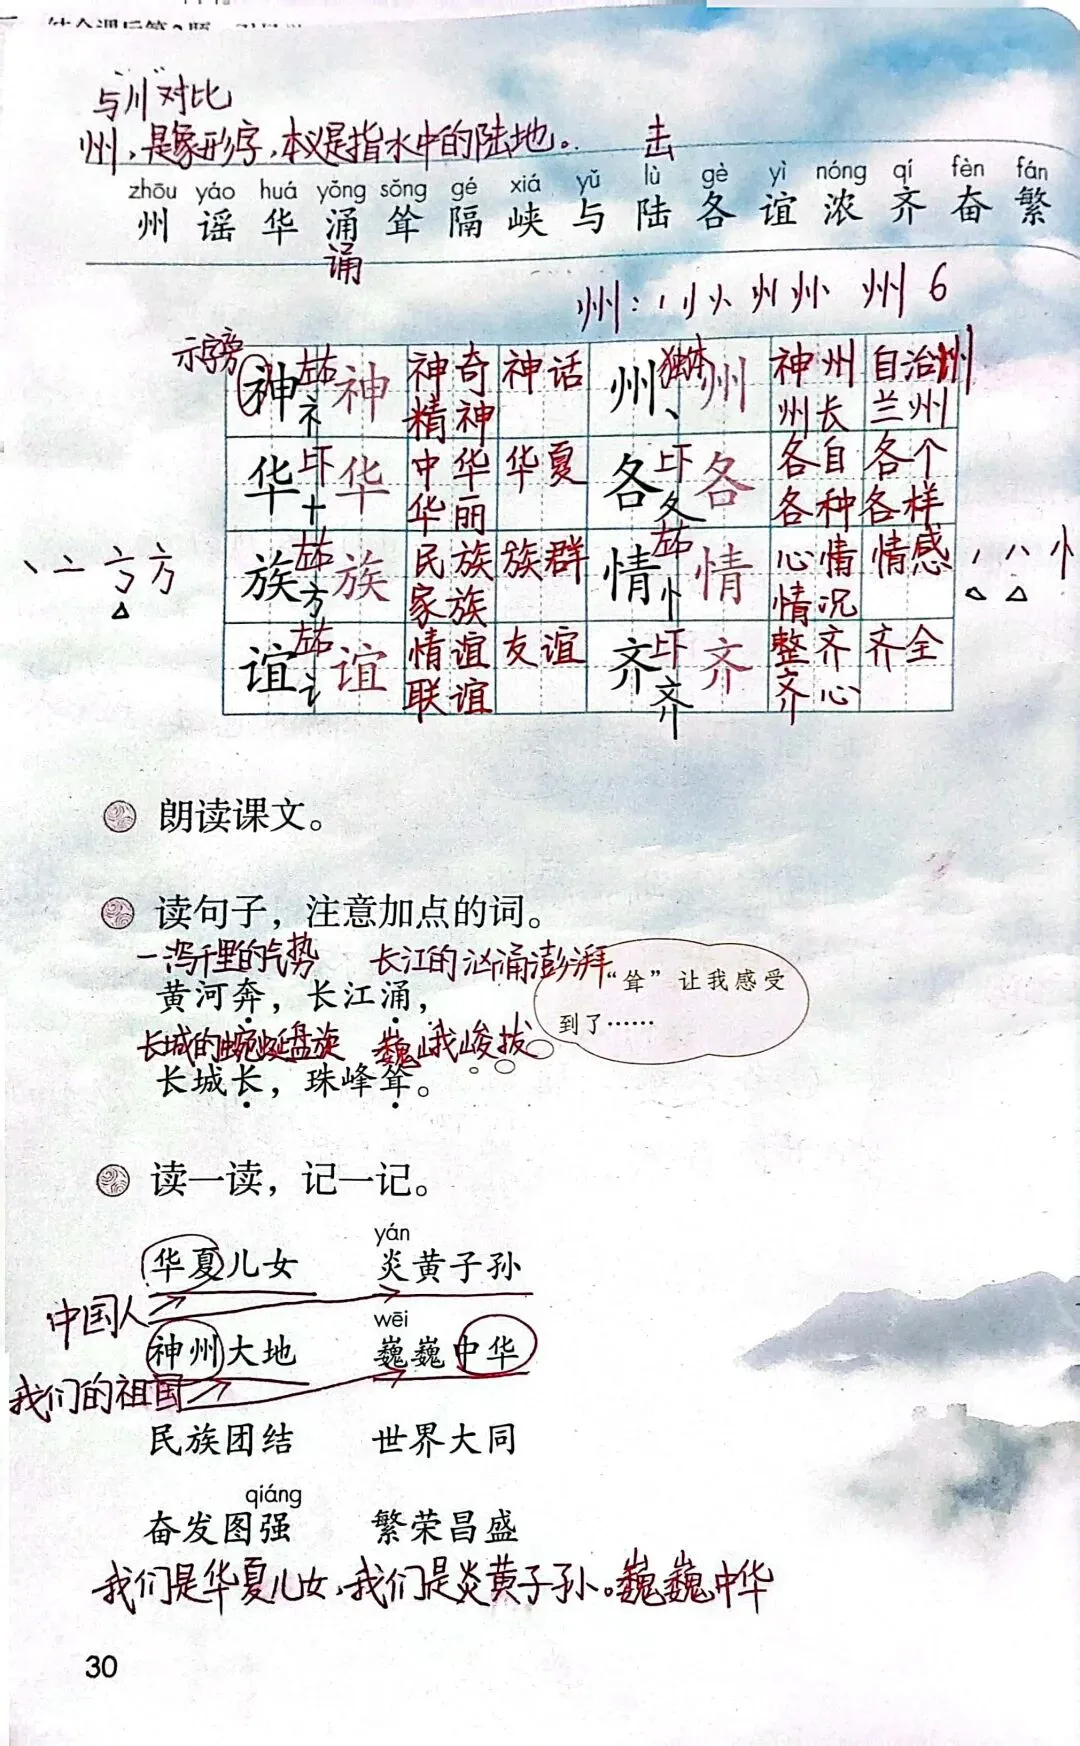 与“川”对比
州，是象形字，本义是指水中的陆地。 击
zhōu yáo huá yǒng sǒng gé xiá yǔ lù gè yì nóng qí fèn fán
州 谣 华 涌 耸 隔 峡 与 陆 各 谊 浓 齐 奋 繁
诵
州： 州 6
示字旁
神 左右 礻 神 神奇 神话 州 独体 丶 州 神州 自治州
精神 州长 兰州
华 上下 十 华 中华 华夏 各 上下 夂 各 各自 各个
华丽 各种 各样
族 左右 方 族 民族 族群 情 左右 忄 情 心情 情感
家族 情况
谊 左右 讠 谊 情谊 友谊 齐 上下 齐 齐 整齐 齐全
联谊 齐心
朗读课文。
读句子，注意加点的词。
一泻千里的气势 长江的汹涌澎湃
黄河奔，长江涌，
“耸”让我感受
到了……
长城的蜿蜒盘旋 巍峨峻拔
长城长，珠峰耸。
读一读，记一记。
yán
华夏儿女 炎黄子孙
中国人
wēi
神州大地 巍巍中华
我们的祖国
民族团结 世界大同
qiáng
奋发图强 繁荣昌盛
我们是华夏儿女，我们是炎黄子孙。巍巍中华
30